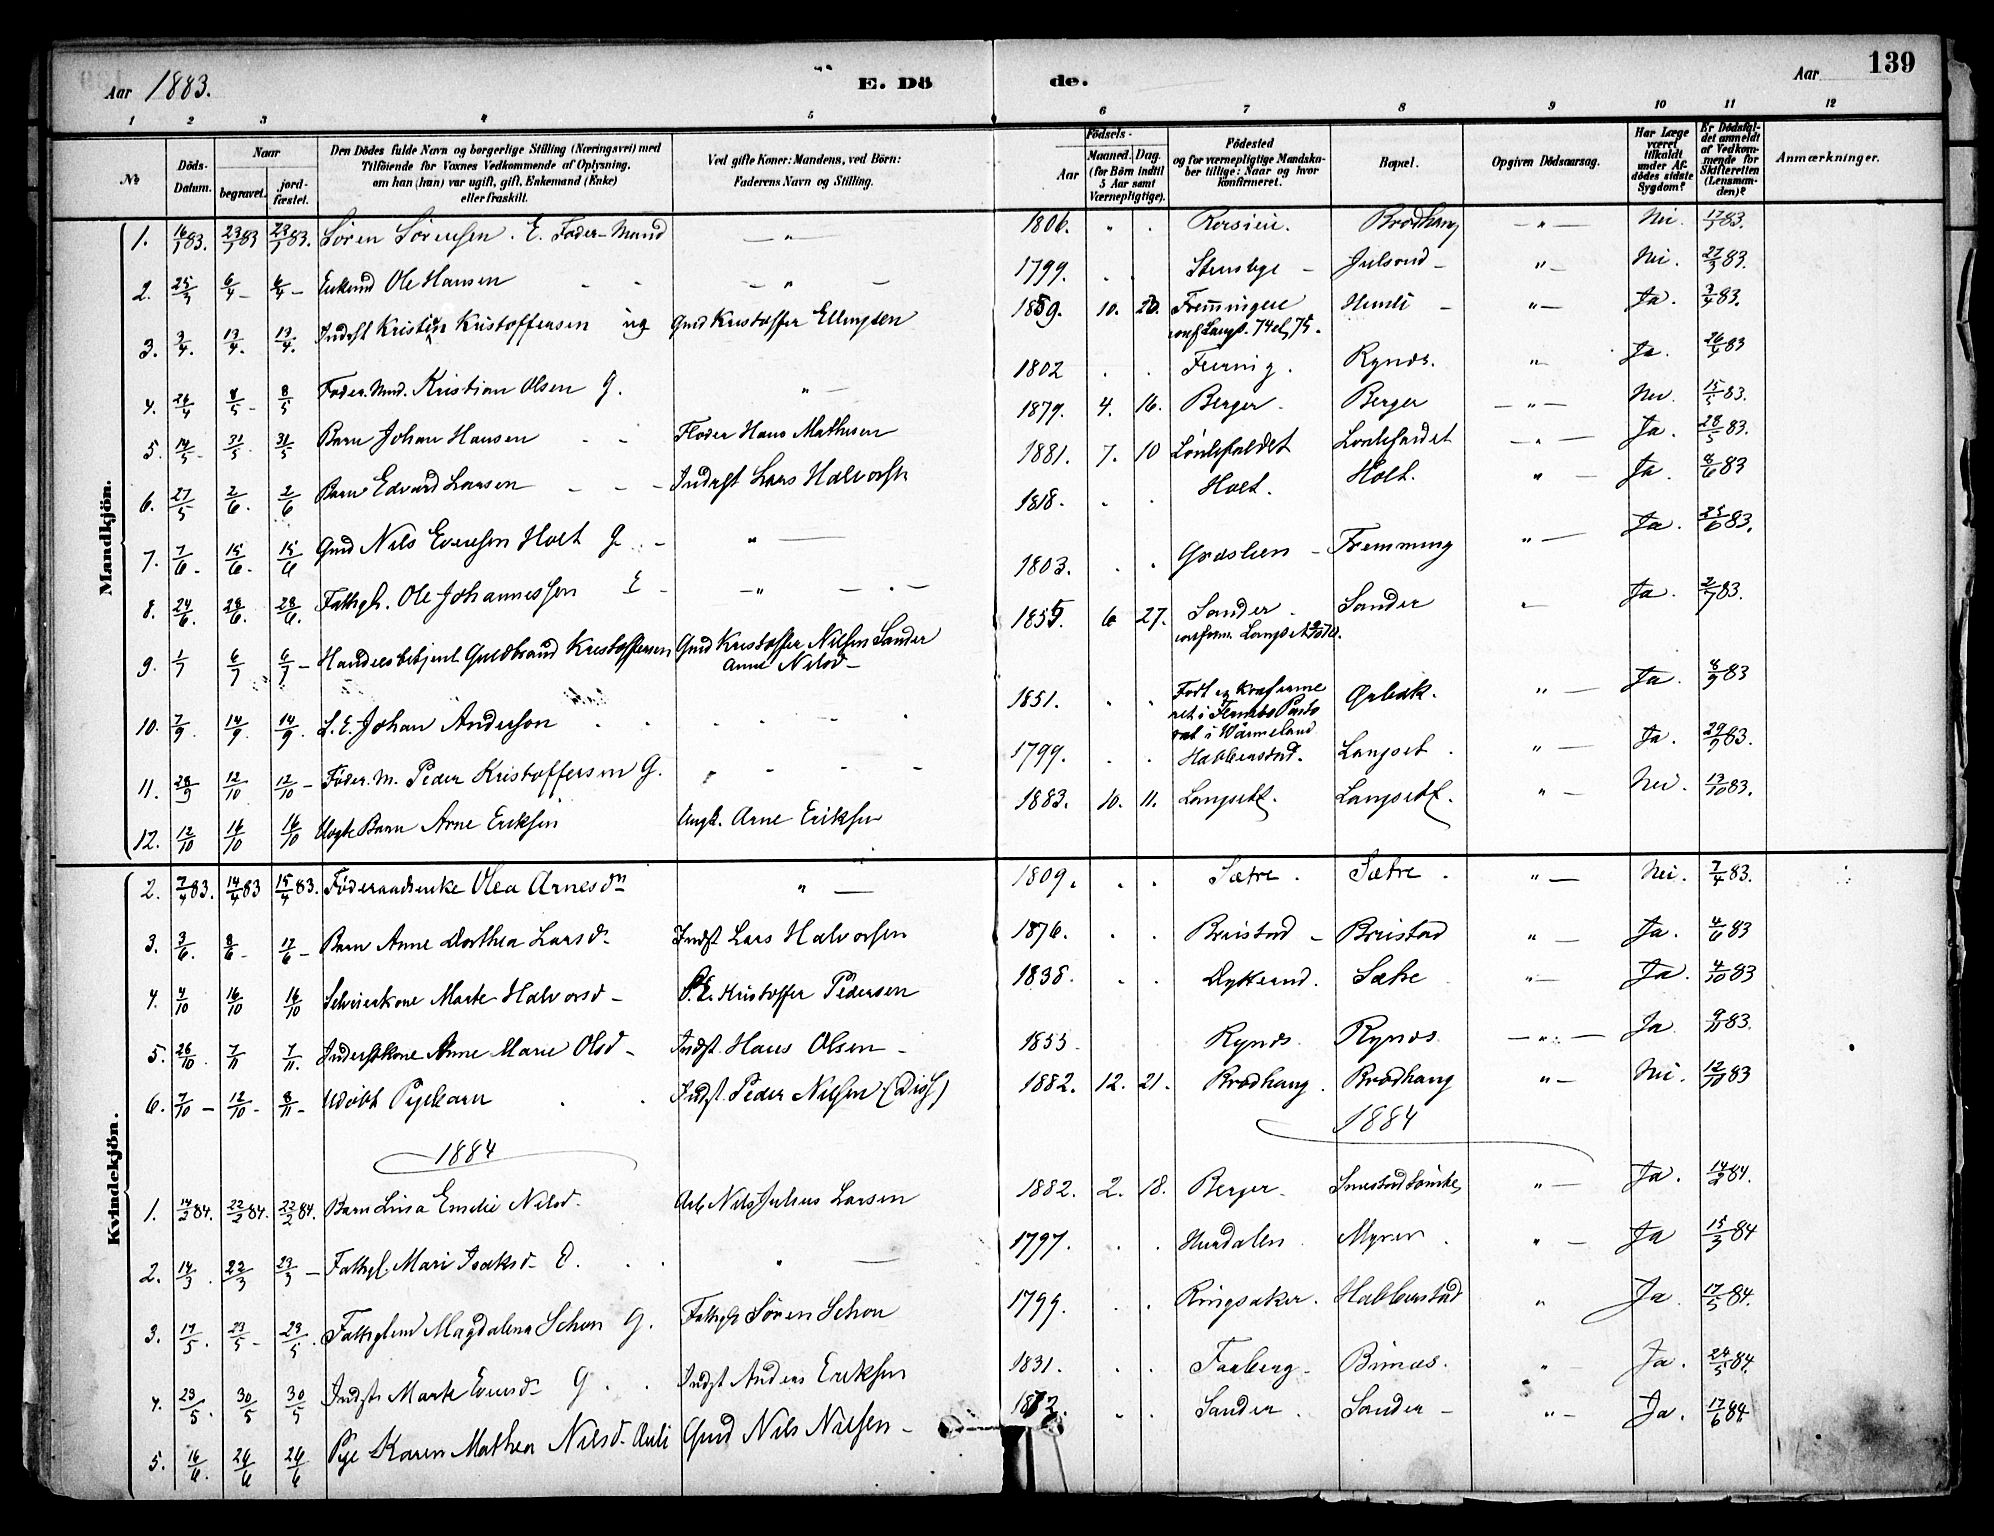 139
Aar 1883. E. Dö de. Aar
1 2 3 4 5 6 7 8 9 10 11 12
№
Döds-Datum.
Naar
begravet.
jordfæstet.
Den Dödes fulde Navn og borgerlige Stilling (Næringsvei) med
Tilföiende for Voxnes Vedkommende af Oplysning,
om han (hun) var ugift, gift, Enkemand (Enke)
eller fraskilt.
Ved gifte Koner: Mandens, ved Börn:
Faderens Navn og Stilling.
Födsels-
Aar
Maaned. Dag.
(for Börn indtil
5 Aar samt
Værnepligtige).
Födested
og for værnepligtige Mandska-
ber tillige: Naar og hvor
konfirmeret.
Bopæl.
Opgiven Dödsaarsag.
Har Læge
været
tilkaldt
under Af-
dödes sidste
Sygdom?
Er Dödsfal-
det anmeldt
af Vedkom-
mende for
Skifteretten
(Lensman-
den)?
Anmærkninger.
Mandkjön.
1. 16/1 83. 23/1 83 23/1 83. Sören Sörensen. E. Foder-Mand — „ — 1806. Brodhang — „ — Nei. 17/1 83.
2. 25/3 6/4 - 6/4 - Enkemd Ole Hansen — „ — 1799. Julsrud - „ — Nei. 27/3 83.
3. 3/4. 13/4. 13/4. Indst Kristian Kristoffersen ug Gmd Kristoffer Ellingsen 1859. 10. 20. „ — Ja. 3/4 83.
4. 26/4 8/5 - 8/5 Foder.Md. Kristian Olsen G. „ — 1802 Rynds. „ Ja. 26/4 83
5. 14/5 - 31/5. 31/5 Barn Johan Hansen Hans Mathisen 1879. 4. 16. Berger. Berger — „ — Nei. 15/5 83.
6. 27/5 2/6. 2/6 Barn Edvard Larsen Indrst Lars Halvorsen 1881. 7. 10 — „ — Ja. 28/5 83.
7. 7/6 - 15/6. 15/6 Gmd Nils Evensen Holt G. „ — 1818. Holt. Holt. „ — Ja. 8/6 83
8. 24/6. 28/6. 28/6. Fattigl. Ole Johannessen E — „ — 1803. Fremming „ — Ja. 25/6 83.
9. 1/7 6/7 6/7 - Handelsbetjent Guldbrand Kristoffersen Gmd Kristoffer Nilsen Sander
Anne Nilsd- 1855. 6 27. Sander. Sander „ Ja. 2/7 83.
10. 7/9. 14/9. 14/9. S.E. Johan Anderson 1851. Født og Konfirme
ret i
i Wärmeland Ørbæk. „ — Ja. 8/9 83
11. 28/9 12/10 12/10 - Föder.M. Peder Kristoffersen G. 1799. Habberstad. Langset. „ — Ja. 29/9 83.
12. 12/10 16/10 16/10 Barn Arne Eriksen Ungk. Arne Eriksen 1883. 10. 11. Langset. Langset. „ — Nei. 13/10 83.
Kvindekjön.
2. 7/4 83. 14/4 83 15/4 83. Föderaadsenke Olea Arnesdn „ — 1809. Sætre. Sætre. „ — Nei. 7/4 83.
3. 3/6. 8/6 - 17/6 - Barn Anne Dorthea Larsd- Indst Lars Halvorsen 1876. Brustad - Brustad „ — Ja. 4/6 83
4. 4/10 16/10 16/10 Selveierkone Marte Halvorsd- S.E. Kristoffer Pedersen 1838. Dytterud. Sætre „ — Ja. 4/10 83
5. 26/10. 7/11 7/11. Inderstkone Anne Marie Olsd- Indst. Hans Olsen - 1853 Rynds. Rynds. — „ — Ja 9/11 83.
6. 7/10 - 12/10 - 8/11 - Udöbt Pigebarn Indst. Peder Nilsen (Diss) 1882. 12. 21. Brodhang. Brodhang „ — Nei. 12/10 83
1884 1884
1. 14/2 84. 22/2 84. 22/2 84. Barn Lina Emilie Nilsd. Arb Nils Julius Larsen 1882. 2. 18. Berger. „ — Ja. 14/2 84.
2. 14/3. 22/3 23/3 - Fattigl. Mari Isaksd- E. „ — 1797. Hurdalen. Myrer. „ — Ja 15/3 84
3. 17/5. 23/5 - 23/5. Fattiglem Magdalena Schou G. Fattigl Sören Schou 1799. Ringsaker. Habberstad „ Ja. 17/5 84.
4. 23/5. 30/5 30/5 Indst Marte Evensd- G. Indst Anders Eriksen 1831. Faaberg - „ — Ja. 24/5 84.
5. 16/6. 24/6 24/6 Pige Karen Mathea Nilsd. Gmd Nils Nilsen - Sander. Sander - „ — Ja. 17/6 84